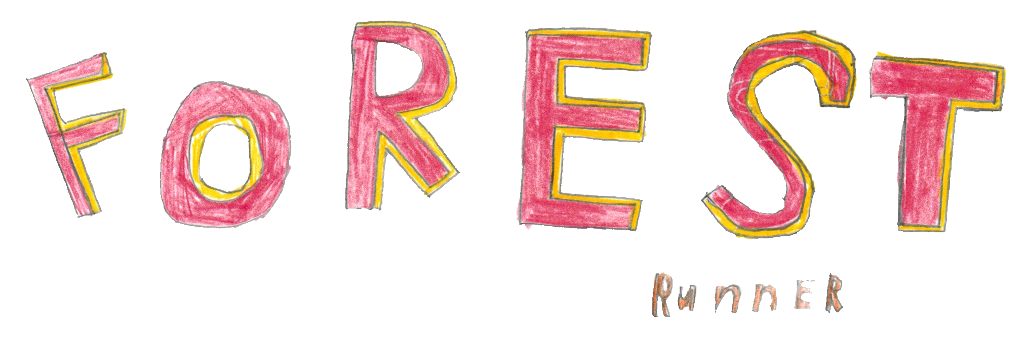 FOREST
RunnER